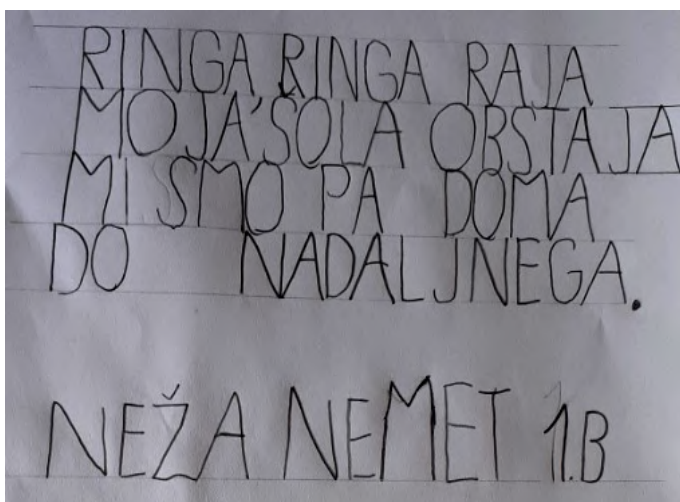 RINGA RINGA RAJA
MOJA ŠOLA OBSTAJA
MI SMO PA DOMA
DO NADALJNEGA.
NEŽA NEMET 1.B